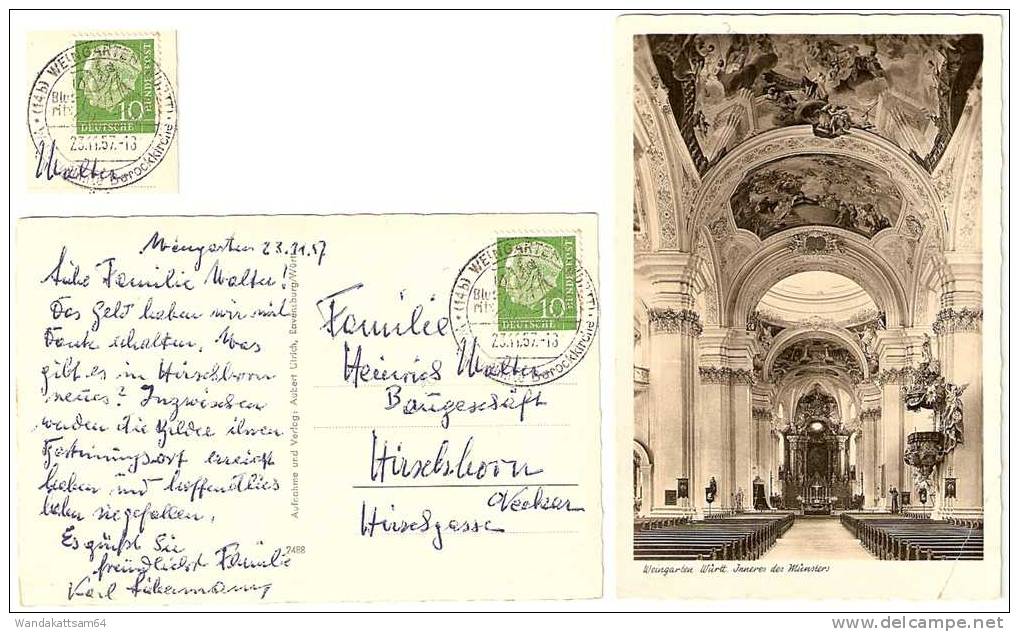 (14b) WEINGARTEN (WÜRTT)
10
DEUTSCHE
BUNDESPOST
23.11.57.-18
Barockkirche
Walter
Weingarten 23.11.57
Liebe Familie Walter!
Das Geld haben wir mit
Dank erhalten. Was
gibt es in Hirschhorn
neues? Inzwischen
werden die Bilder ihren
Bestimmungsort erreicht
haben und hoffentlich
haben sie gefallen.
Es grüßt Sie
freundlichst Familie
Karl
Aufnahme und Verlag: Aubert Ulrich, Ravensburg/Württ.
2488
(14b) WEINGARTEN (WÜRTT)
10
DEUTSCHE
BUNDESPOST
23.11.57.-18
Barockkirche
Familie
Heinrich Walter
Baugeschäft
Hirschhorn
Neckar
Hirschgasse
Weingarten Württ. Inneres des Münsters
Wandakattsam64
www.delcampe.net